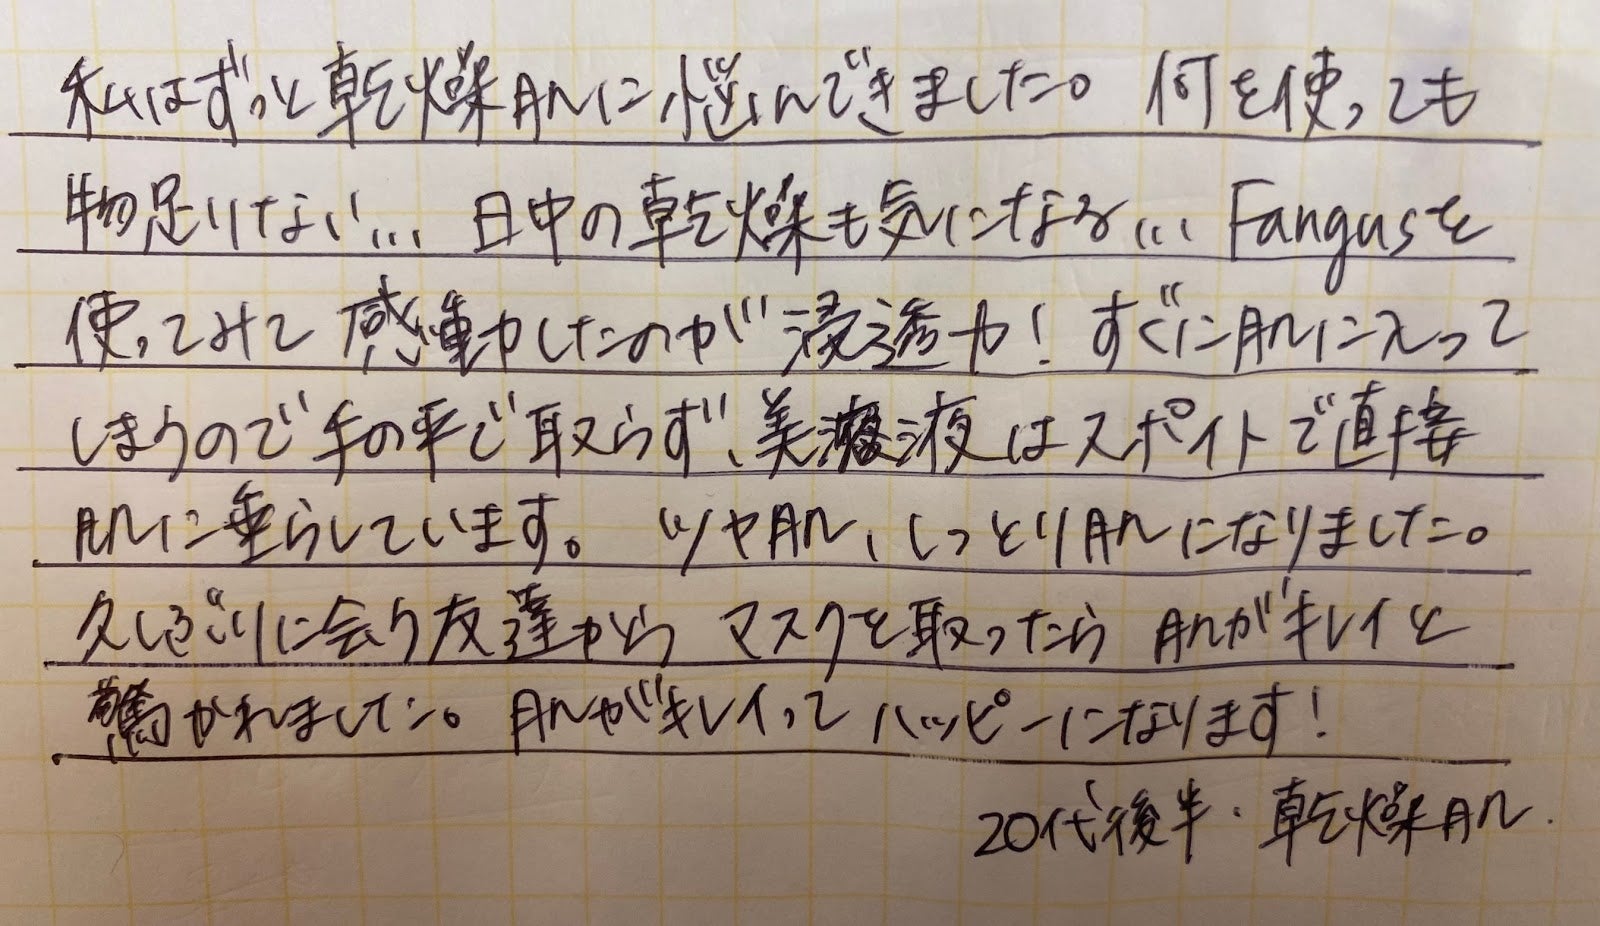 私はずっと乾燥肌に悩んできました。 何を使っても
物足りない... 日中の乾燥も気になる... Fangusを
使ってみて感動したのが浸透力! すぐに肌に入って
しまうので手の平で取らず、美容液はスポイトで直接
肌に垂らしています。 ツヤ肌、しっとり肌になりました。
久しぶりに会う友達から マスクを取ったら 肌がキレイと
驚かれました。 肌がキレイって ハッピーになります!
20代後半・乾燥肌.